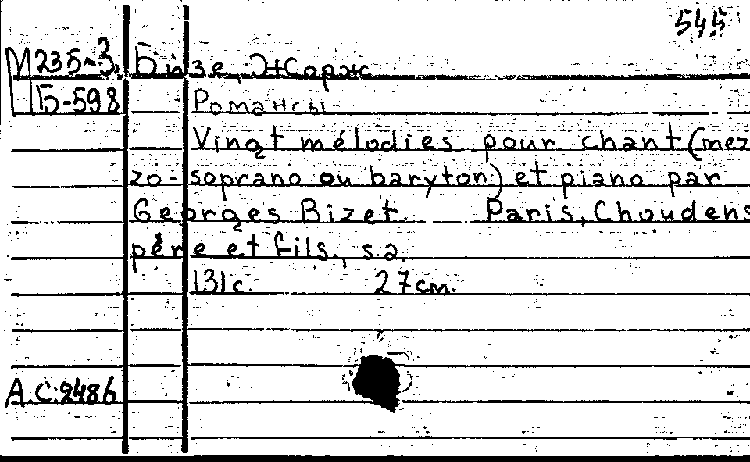 545
М235-3. Бизе, Жорж
Б-598 Романсы
Vingt mélodies pour chant (mez
zo-soprano ou baryton) et piano par
Georges Bizet Paris, Choudens
pére et fils., s.a.
131с. 27см.
А.С.2486